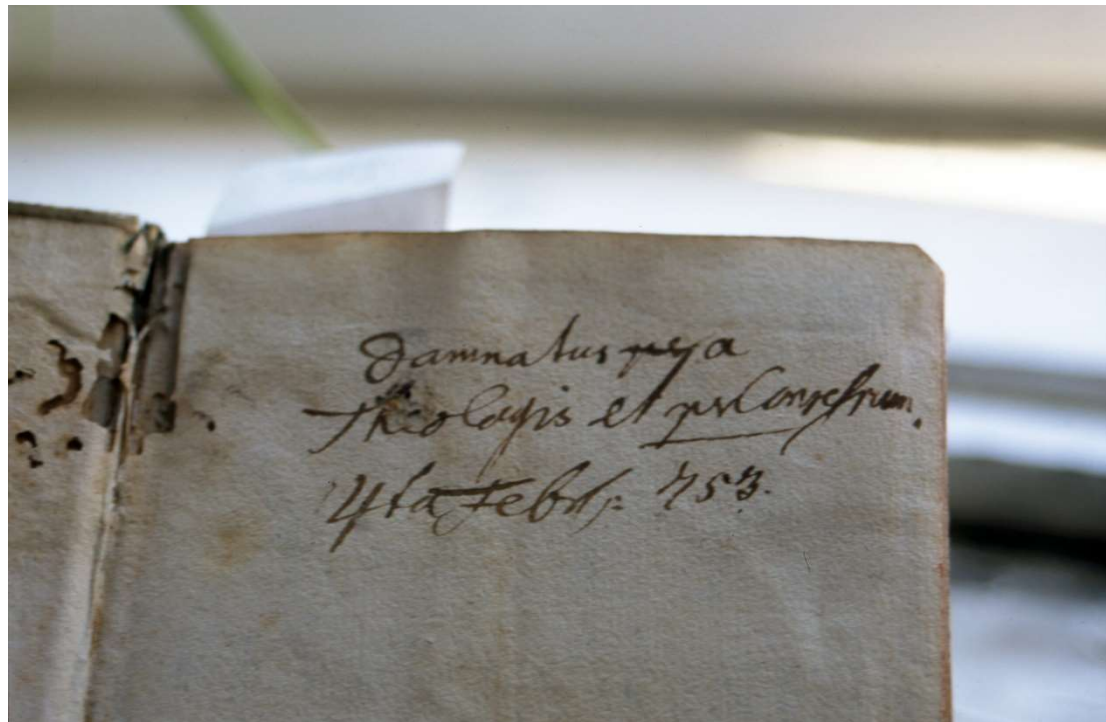 Damnatus a
Theologis et per Consessum.
4ta Febr: 753.